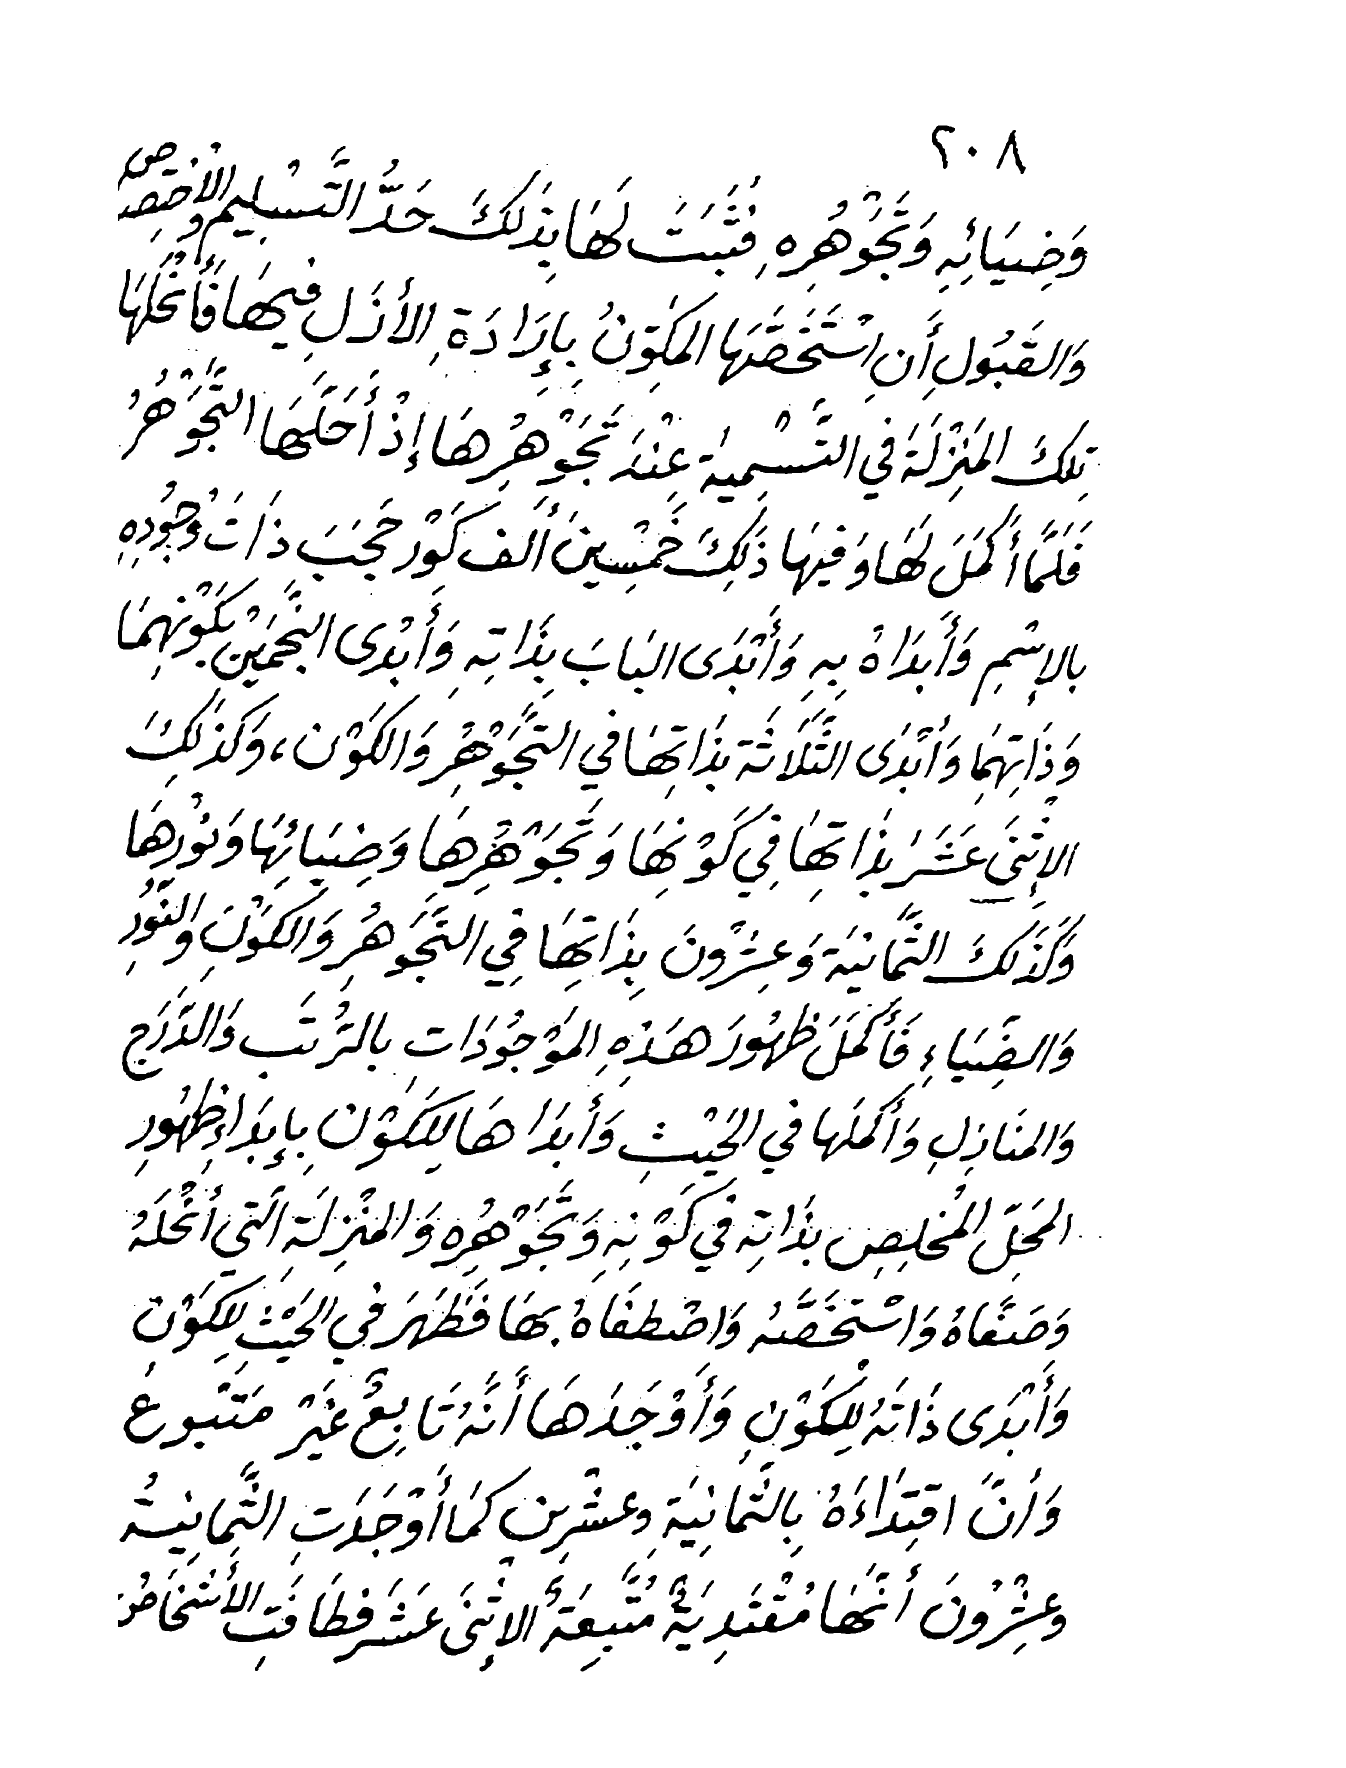 ٢٠٨
وَضِيَائِهِ وَتَجَوْهُرِهِ فَثَبَتَ لَهَا بِذَلِكَ حَدُّ التَّسْلِيمِ وَالاخْتِصَاص
وَالقَبُولِ أَنِ اسْتَخَصَّهَا المُكَوّنُ بِإِرَادَةِ الأزَلِ فِيهَا فَأَنْحَلَهَا
تِلكَ المَنْزِلَةَ في التَّسْمِيَةِ عِنْدَ تَجَوْهُرِهَا إِذْ أَحَلَّهَا التَّجَوْهُرُ
فَلَمَّا أَكْمَلَ لَهَا وَفِيهَا ذَلِكَ خَمْسِينَ أَلف كَوْر حَجَبَ ذَاتَ وُجُودِهِ
بالإِسْمِ وَأَبْدَاهُ بِهِ وَأَبْدَى البَابَ بِذَاتِهِ وَأَبْدَى النَّجْمَيْنِ بِكَوْنِهِمَا
وَذَاتِهِمَا وَأَبْدَى الثَّلَاثَة بِذَاتِهَا في التَّجَوْهُرِ وَالكَوْن، وَكَذَلِكَ
الإثْنَى عَشَرَ بِذَاتِهَا فِي كَوْنِهَا وَتَجَوْهُرِهَا وَضِيَائِهَا وَنُورِهَا
وَكَذَلِكَ الثَّمَانِيَة وَعِشْرُونَ بِذَاتِهَا فِي التَّجَوهُرِ وَالكَوْنِ وَالنُّورِ
وَالضِّيَاءِ فَأَكْمَلَ ظهُورَ هَذِهِ المَوْجُودَاتِ بالرُّتَب وَالدَّرَج
وَالمنَازِلِ وَأَكْمَلَهَا في الحَيْثِ وَأَبْدَاهَا لِلكَوْنِ بِإِبْدَاءِ ظهُورِ
المَحَلّ المُخلِصِ بِذَاتِهِ في كَوْنِهِ وَتَجَوْهُرِهِ وَالمَنْزِلَةِ الَّتِي أَنْحَلَهُ
وَصَفَّاهُ وَاسْتَخَصَّهُ وَاصْطفَاهُ بِهَا فَظَهَرَ في الحَيْثِ لِلكَوْنِ
وَأَبْدَى ذَاتَهُ لِلكَوْنِ وَأَوْجَدَهَا أَنَّهُ تَابِعٌ غَيْر مَتْبوعٍ
وَأَنَّ اقتِدَاءَهُ بِالثَّمَانِيَةِ وعشْرِين كمَا أَوْجَدَتِ الثَّمِانِيَة
وعِشْرُونَ أَنَّهَا مُقْتَدِيَةٌ مُتَّبِعَةٌ الإثْنَى عَشَر فطَافَتِ الأَشْخَاصُ